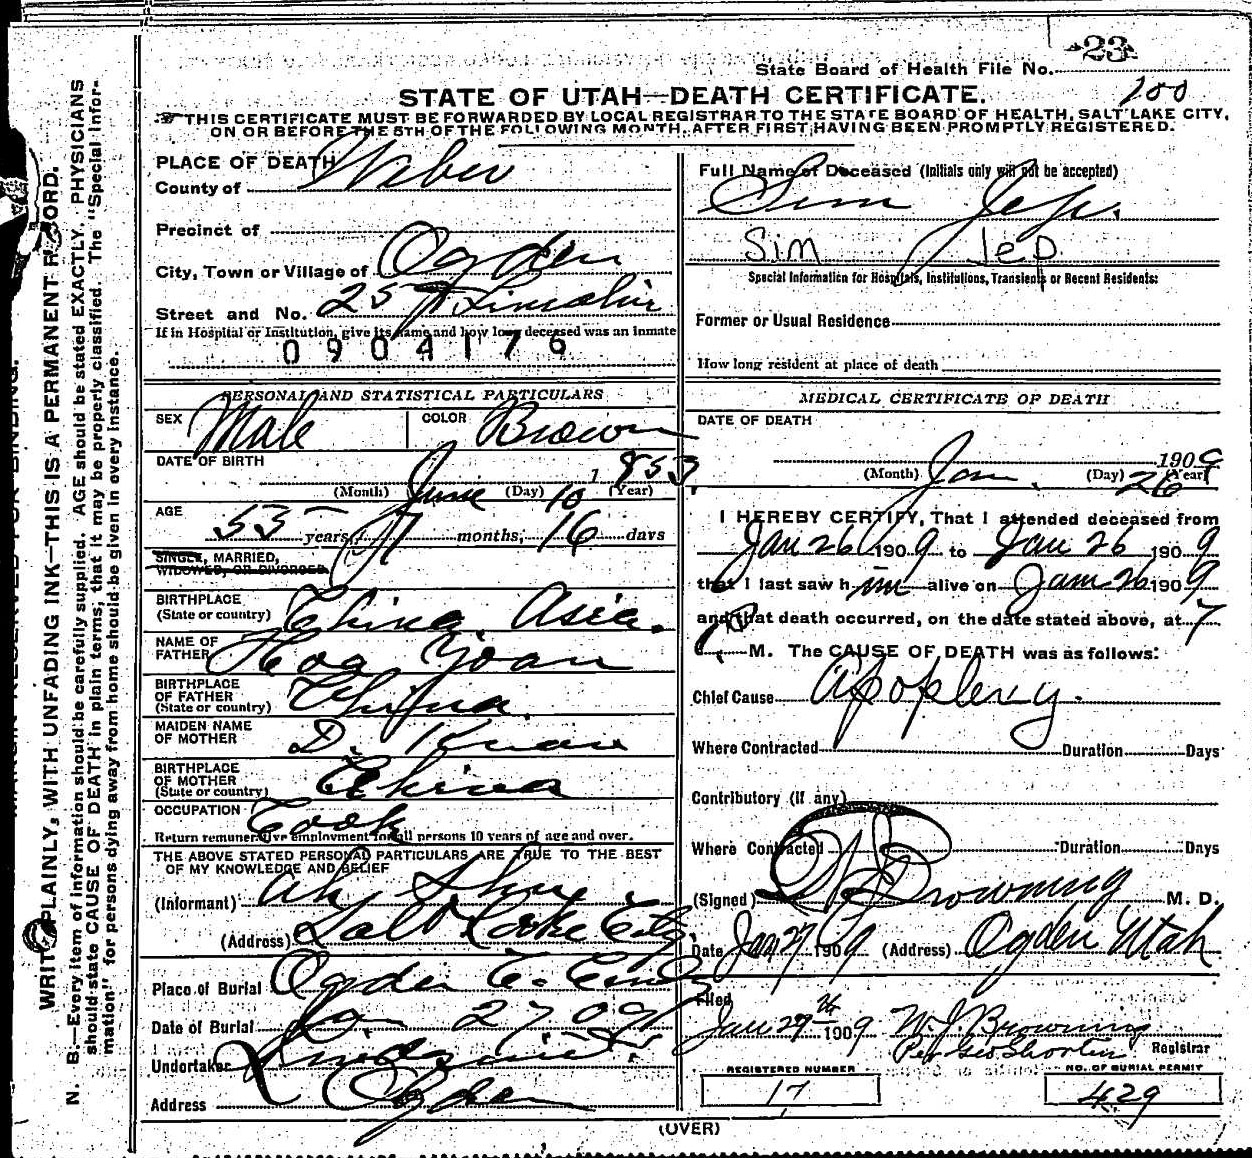 23
State Board of Health File No.
200
STATE OF UTAH—DEATH CERTIFICATE.
THIS CERTIFICATE MUST BE FORWARDED BY LOCAL REGISTRAR TO THE STATE BOARD OF HEALTH, SALT LAKE CITY,
ON OR BEFORE THE 5TH OF THE FOLLOWING MONTH, AFTER FIRST HAVING BEEN PROMPTLY REGISTERED.
WRITE PLAINLY, WITH UNFADING INK—THIS IS A PERMANENT RECORD.
N. B.—Every item of information should be carefully supplied. AGE should be stated EXACTLY. PHYSICIANS
should state CAUSE OF DEATH in plain terms, that it may be properly classified. The "Special Infor-
mation" for persons dying away from home should be given in every instance.
PLACE OF DEATH
County of Weber
Precinct of
City, Town or Village of Ogden
Street and No. 25 Lincoln
If in Hospital or Institution, give its name and how long deceased was an inmate
0904176
PERSONAL AND STATISTICAL PARTICULARS
SEX Male COLOR Brown
DATE OF BIRTH
(Month) June (Day) 10 1853 (Year)
AGE
53 years, 7 months, 16 days
SINGLE, MARRIED,
WIDOWED, OR DIVORCED
BIRTHPLACE
(State or country) China Asia.
NAME OF
FATHER Hoa Yoan
BIRTHPLACE
OF FATHER
(State or country) China.
MAIDEN NAME
OF MOTHER D. Kuan
BIRTHPLACE
OF MOTHER
(State or country) China
OCCUPATION Cook
Return remunerative employment for all persons 10 years of age and over.
THE ABOVE STATED PERSONAL PARTICULARS ARE TRUE TO THE BEST
OF MY KNOWLEDGE AND BELIEF
(Informant) Ah
(Address) Salt Lake City.
Place of Burial Ogden C. Cem
Date of Burial Jan 27 09
Undertaker
Address Ogden
Full Name of Deceased (Initials only will not be accepted)
Sim Jep.
Sim Jep
Special Information for Hospitals, Institutions, Transients or Recent Residents:
Former or Usual Residence
How long resident at place of death
MEDICAL CERTIFICATE OF DEATH
DATE OF DEATH
(Month) Jan. (Day) 26 1909 (Year)
I HEREBY CERTIFY, That I attended deceased from
Jan 26 1909 to Jan 26 1909
that I last saw him alive on Jan 26 1909
and that death occurred, on the date stated above, at 7
P M. The CAUSE OF DEATH was as follows:
Chief Cause Apoplexy.
Where Contracted Duration Days
Contributory (if any)
Where Contracted Duration Days
(Signed) Browning M. D.
Date Jan 27 1909 (Address) Ogden Utah
Filed
Jan 27th 1909 W. J. Browning
Per Geo Shorten Registrar
REGISTERED NUMBER
17
NO. OF BURIAL PERMIT
429
(OVER)